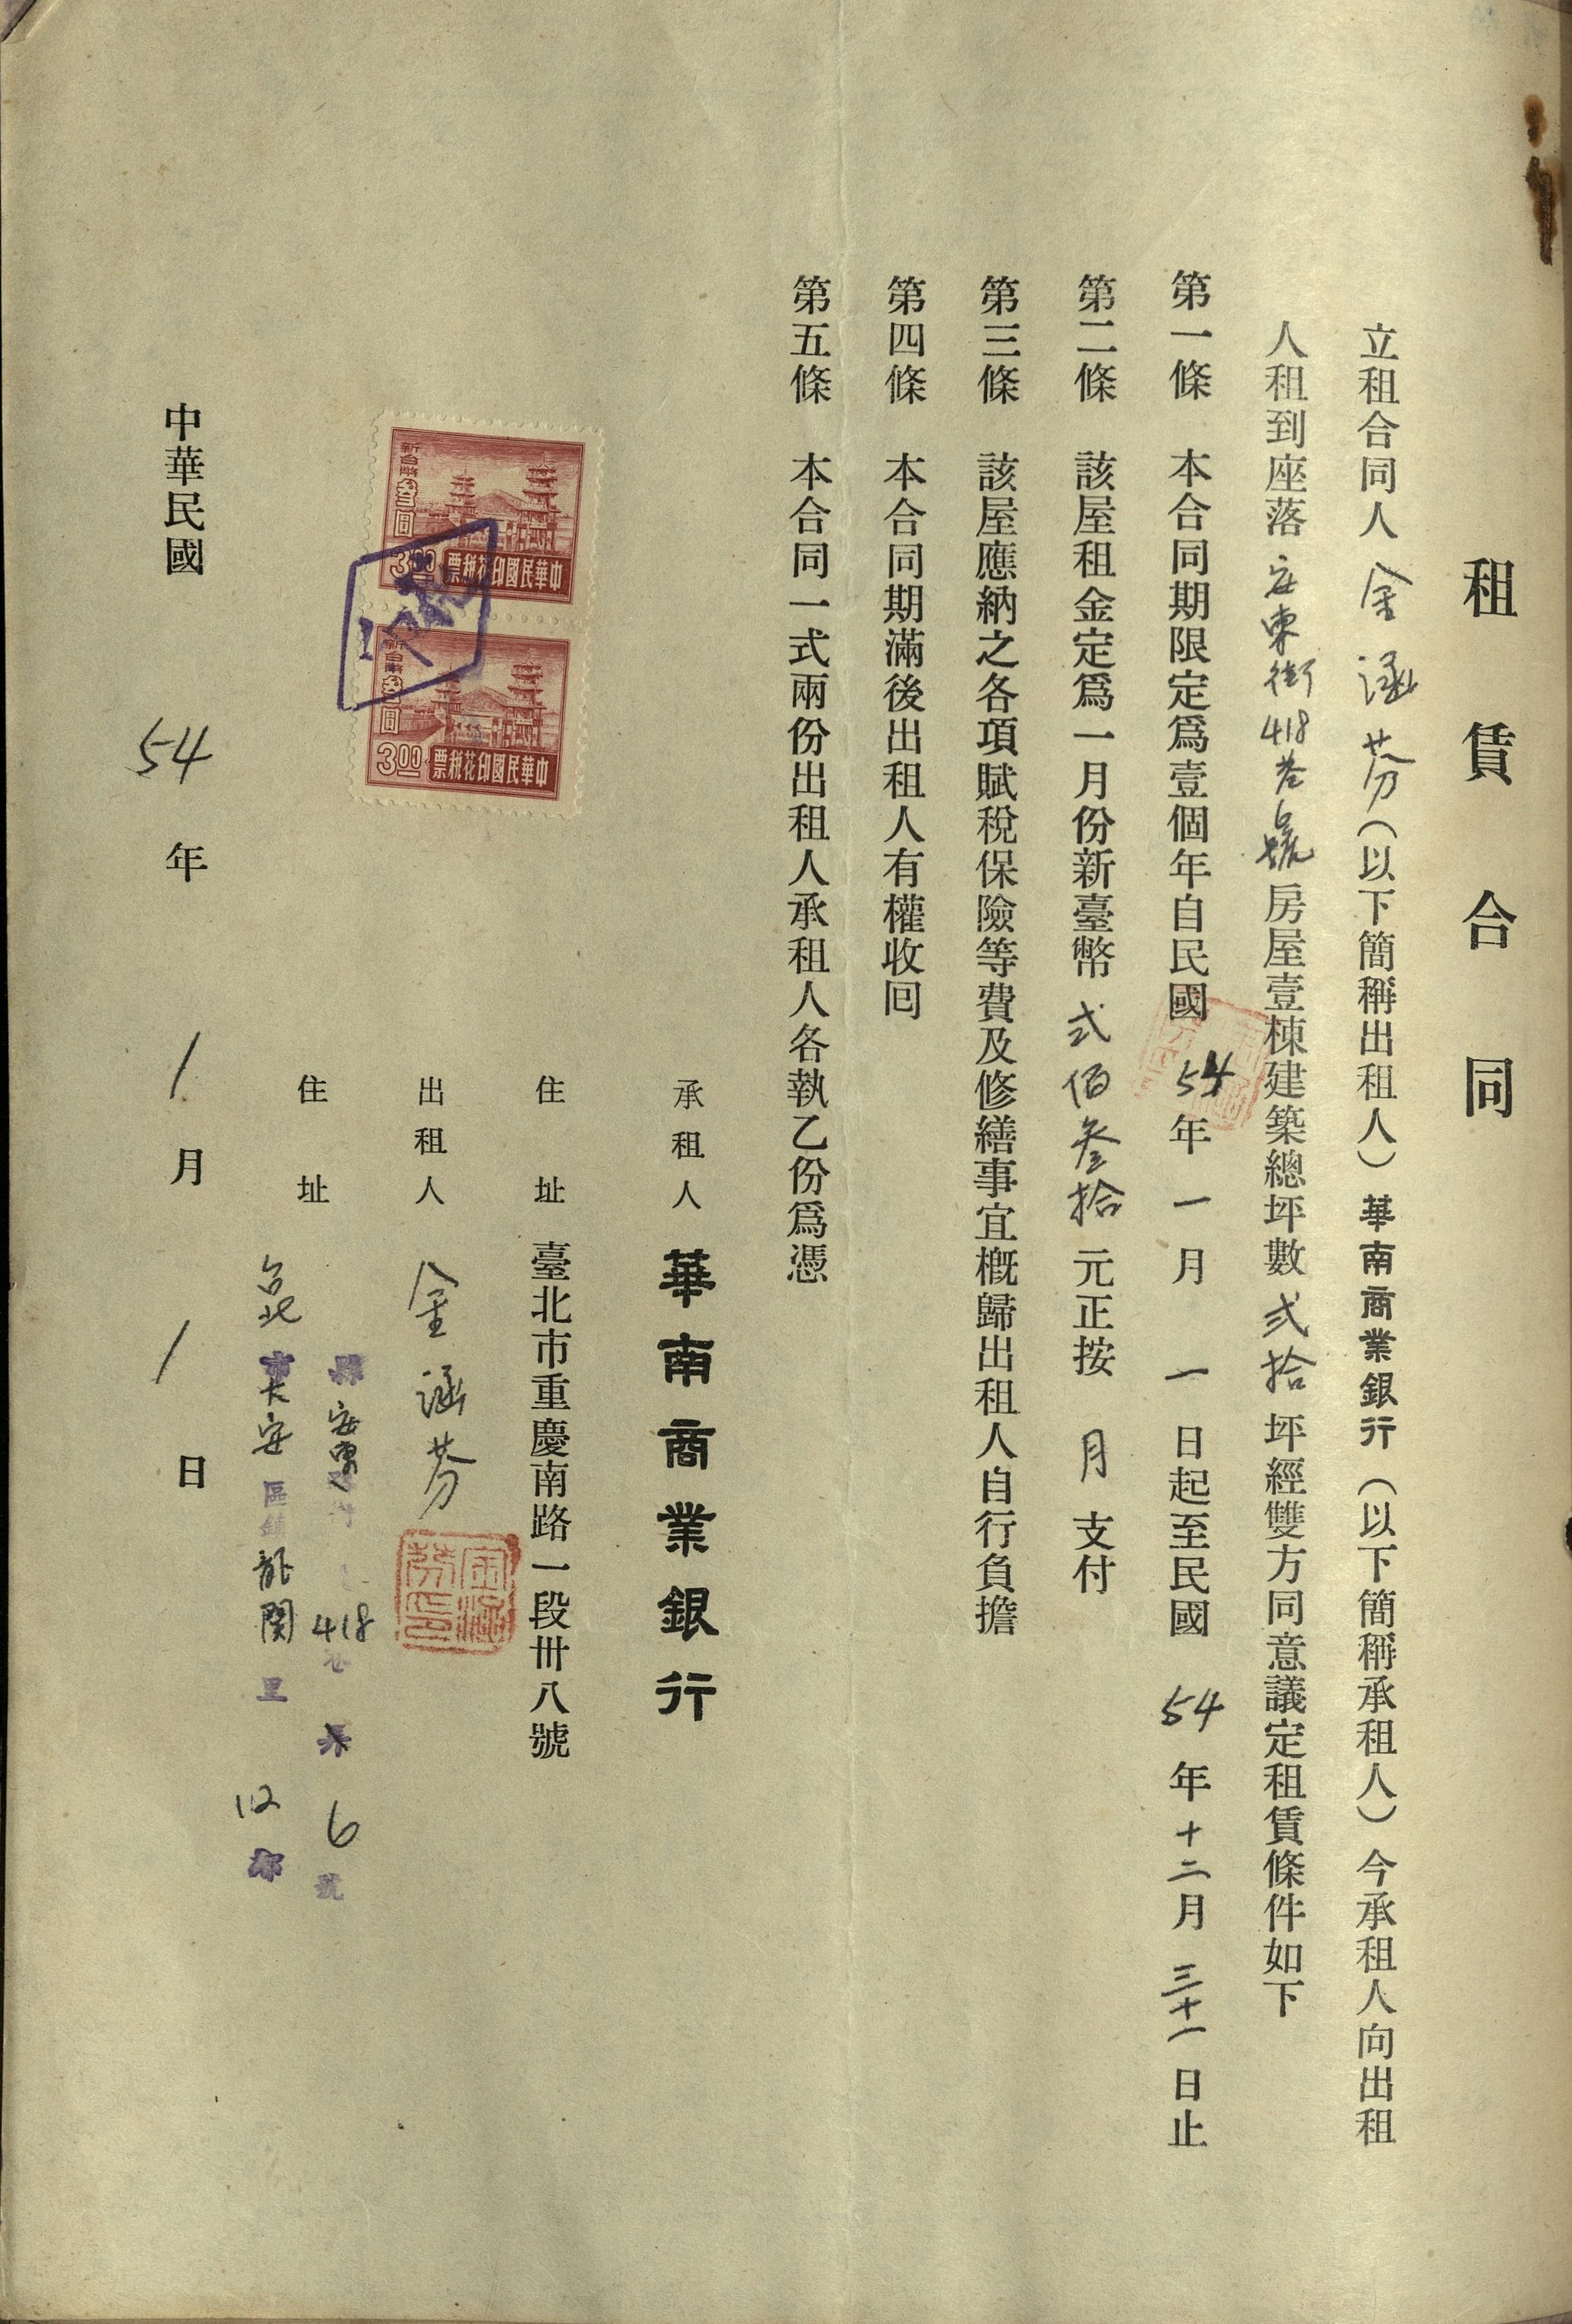 租賃合同
立租合同人金涵芬(以下簡稱出租人)華南商業銀行(以下簡稱承租人)今承租人向出租
人租到座落安東街418巷號房屋壹棟建築總坪數弍拾坪經雙方同意議定租賃條件如下
第一條 本合同期限定爲壹個年自民國54年一月一日起至民國54年十二月三十一日止
第二條 該屋租金定爲一月份新臺幣弍佰叁拾元正按月支付
第三條 該屋應納之各項賦稅保險等費及修繕事宜概歸出租人自行負擔
第四條 本合同期滿後出租人有權收囘
第五條 本合同一式兩份出租人承租人各執乙份爲憑
承租人 華南商業銀行
住址 臺北市重慶南路一段卅八號
出租人 金涵芬
金涵芬印
住址
縣 安東 418巷 6號
台北市大安區鎮龍関里 12鄰
新台幣叁圓
3.00
中華民國印花稅票
新台幣叁圓
3.00
中華民國印花稅票
中華民國54年1月1日